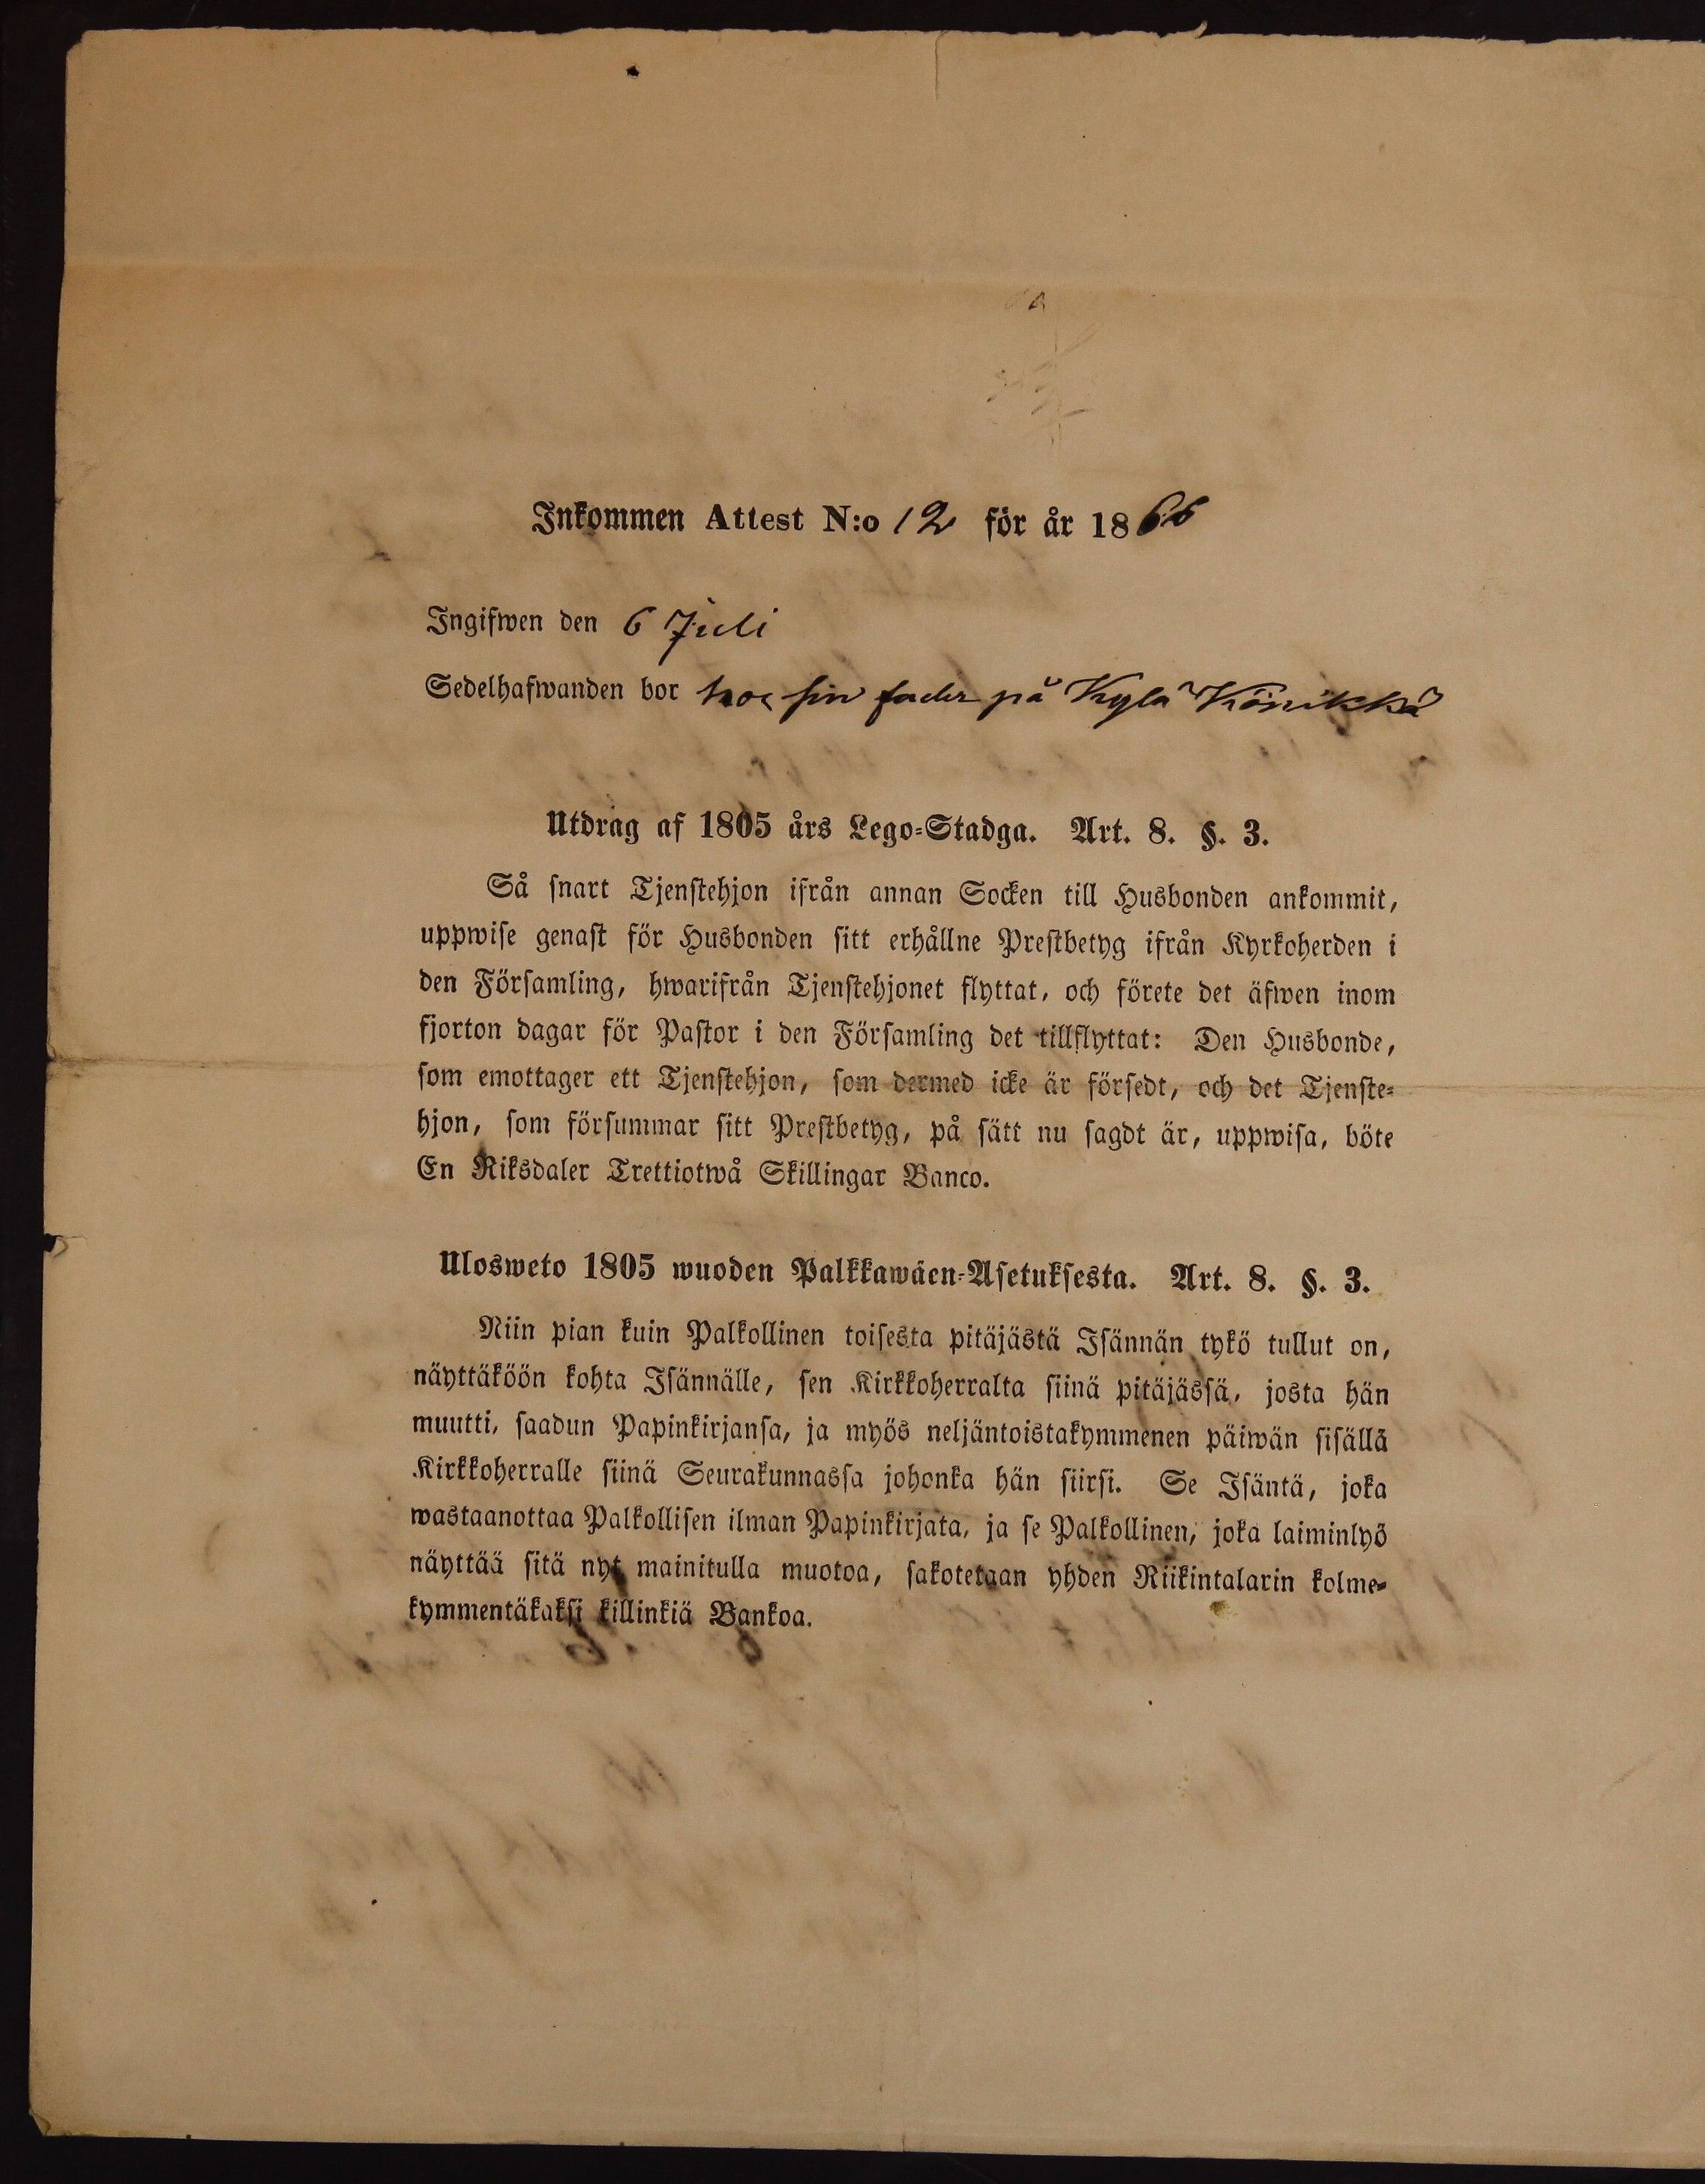 Inkommen Attest N:o 12 för år 1866
Ingifwen den 6 Juli
Sedelhafwanden bor hos sin fader på Kylä Könikkä
Utdrag af 1805 års Lego-Stadga. Art. 8. §. 3.
Så snart Tjenstehjon ifrån annan Socken till Husbonden ankommit,
uppwise genast för Husbonden sitt erhållne Prestbetyg ifrån Kyrkoherden i
den Församling, hwarifrån Tjenstehjonet flyttat, och förete det äfwen inom
fjorton dagar för Pastor i den Församling det tillflyttat: Den Husbonde,
som emottager ett Tjenstehjon, som dermed icke är försedt, och det Tjenste-
hjon, som försummar sitt Prestbetyg, på sätt nu sagdt är, uppwisa, böte
En Riksdaler Trettiotwå Skillingar Banco.
Ulosweto 1805 wuoden Palkkawäen-Asetuksesta. Art. 8. §. 3.
Niin pian kuin Palkollinen toisesta pitäjästä Isännän tykö tullut on,
näyttäköön kohta Isännälle, sen Kirkkoherralta siinä pitäjässä, josta hän
muutti, saadun Papinkirjansa, ja myös neljäntoistakymmenen päiwän sisällä
Kirkkoherralle siinä Seurakunnassa johonka hän siirsi. Se Isäntä, joka
wastaanottaa Palkollisen ilman Papinkirjata, ja se Palkollinen, joka laiminlyö
näyttää sitä nyt mainitulla muotoa, sakotetaan yhden Riikintalarin kolme-
kymmentäkaksi killinkiä Bankoa.